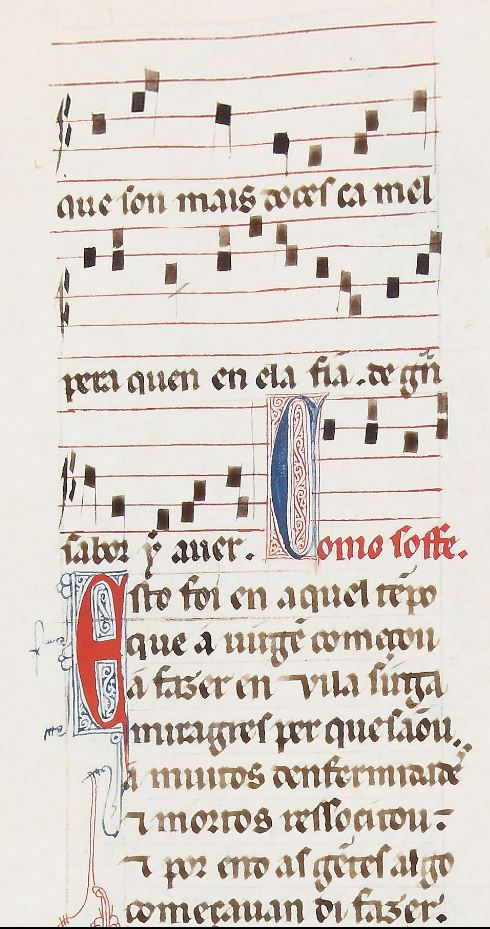 que son mais doces ca mel
pera quen en ela fia. de gñ
sabor ỹ auer. Como soffe.
Esto foi en aquel tẽpo
que a uirgẽ começou
a fazer en Vila sirga
miragres per que sãou.
a muitos denfermidade
⁊ mortos ressocitou.
⁊ por end as gẽtes algo
começauan di fazer.